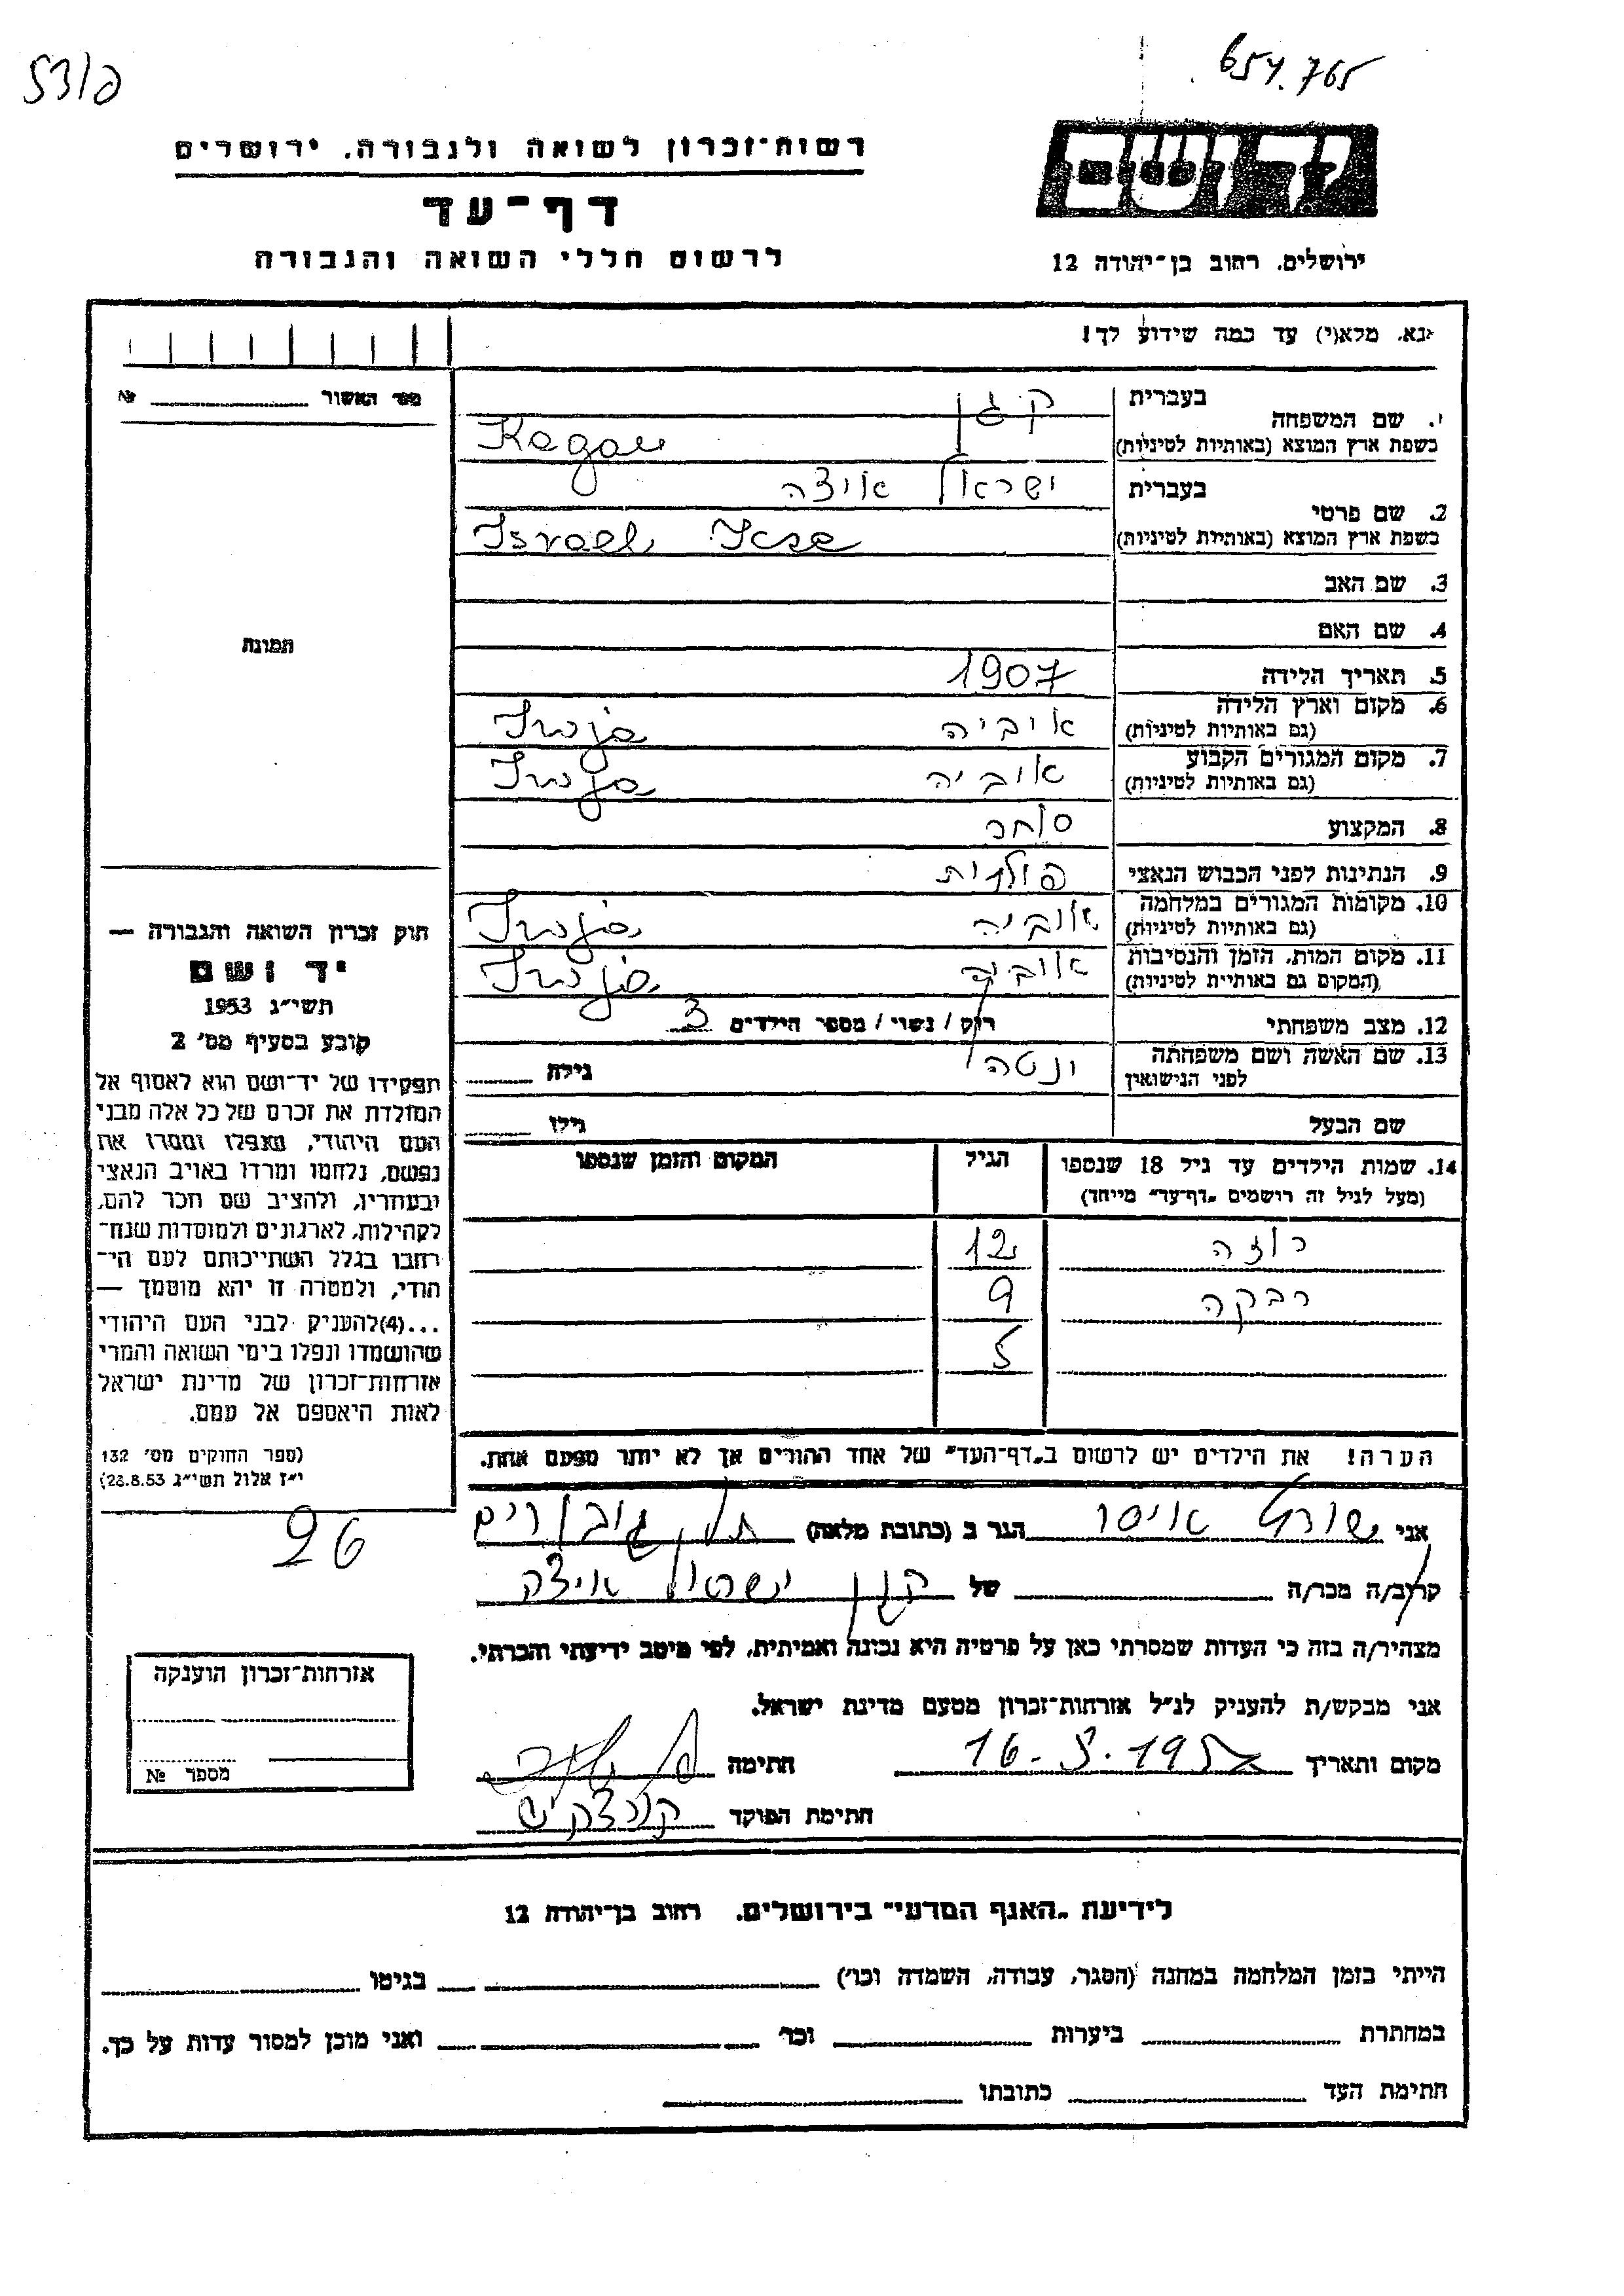 53/פ
654.765
רשות־זכרון לשואה ולגבורה. ירושלים
דף־עד
לרשום חללי השואה והגבורה
יד ושם
ירושלים. רחוב בן־יהודה 12
נא. מלא(י) עד כמה שידוע לך!
מס׳ האשור № 
1. שם המשפחה בעברית קגן
בשפת ארץ המוצא (באותיות לטיניות) Kagan
2. שם פרטי בעברית ישראל איצה
בשפת ארץ המוצא (באותיות לטיניות) Israel Icse
3. שם האב
4. שם האם
תמונה
5. תאריך הלידה 1907
6. מקום וארץ הלידה (גם באותיות לטיניות) איביה Iwje
7. מקום המגורים הקבוע (גם באותיות לטיניות) אוביה Iwje
8. המקצוע סוחר
9. הנתינות לפני הכבוש הנאצי פולנית
10. מקומות המגורים במלחמה (גם באותיות לטיניות) אוביה Iwje
11. מקום המות, הזמן והנסיבות (המקום גם באותיות לטיניות) אוביה Iwje
12. מצב משפחתי רוק / נשוי / מספר הילדים 3
13. שם האשה ושם משפחתה לפני הנישואין גילה
שם הבעל גילו
14. שמות הילדים עד גיל 18 שנספו (מעל לגיל זה רושמים „דף־עד" מייחד) הגיל המקום והזמן שנספו
רוזה 12
רבקה 9
5
הערה! את הילדים יש לרשום ב„דף־העד" של אחד ההורים אך לא יותר מפעם אחת.
חוק זכרון השואה והגבורה —
יד ושם
תשי״ג 1953
קובע בסעיף מס׳ 2
תפקידו של יד־ושם הוא לאסוף אל
המולדת את זכרם של כל אלה מבני
העם היהודי, שנפלו ומסרו את
נפשם, נלחמו ומרדו באויב הנאצי
ובעוזריו, ולהציב שם וזכר להם,
לקהילות, לארגונים ולמוסדות שנח־
רבו בגלל השתייכותם לעם הי־
הודי, ולמטרה זו יהא מוסמך —
...(4)להעניק לבני העם היהודי
שהושמדו ונפלו בימי השואה והמרי
אזרחות־זכרון של מדינת ישראל
לאות היאספם אל עמם.
(ספר החוקים מס׳ 132
י״ז אלול תשי״ג 28.8.53)
26
אני הגר ב (כתובת מלאה)
קרוב/ה מכר/ה של קגן ישראל איצה
מצהיר/ה בזה כי העדות שמסרתי כאן על פרטיה היא נכונה ואמיתית, לפי מיטב ידיעתי והכרתי.
אני מבקש/ת להעניק לנ״ל אזרחות־זכרון מטעם מדינת ישראל.
מקום ותאריך חתימה
חתימת הפוקד
אזרחות־זכרון הוענקה
מספר №
לידיעת „האגף המדעי" בירושלים. רחוב בן־יהודה 12
הייתי בזמן המלחמה במחנה (הסגר, עבודה, השמדה וכו׳) בגיטו
במחתרת ביערות וכו׳ ואני מוכן למסור עדות על כך.
חתימת העד כתובתו